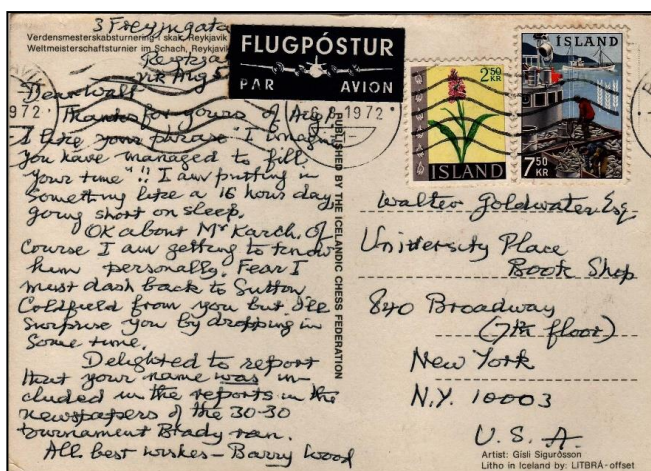 3 Freyjugata
Verdensmesterskabsturnering i skak, Reykjavik
Weltmeisterschaftsturnier im Schach, Reykjavik
Reykja
vik Aug
FLUGPÓSTUR
PAR AVION
972
1972
2 50
KR
ISLAND
ISLAND
7 50
KR
Dear Walt
Thanks for yours of Aug 8.
I like your phrase "I imagine
you have managed to fill
your time"!! I am putting in
something like a 16 hour day
going short on sleep.
OK about Mr Karch. Of
course I am getting to know
him personally. Fear I
must dash back to Sutton
Coldfield from you but I'll
surprise you by dropping in
some time.
Delighted to report
that your name was in-
cluded in the reports in the
newspapers of the 30-30
tournament Brady ran.
All best wishes - Barry Wood
PUBLISHED BY THE ICELANDIC CHESS FEDERATION
Walter Goldwater Esq.
University Place
Book Shop
840 Broadway
(7th floor)
New York
N.Y. 10003
U.S.A.
Artist: Gísli Sigurðsson
Litho in Iceland by: LITBRÁ-offset